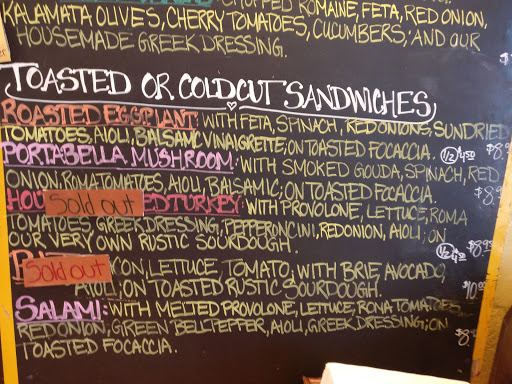 CHOPPED ROMAINE, FETA, RED ONION,
KALAMATA OLIVES, CHERRY TOMATOES, CUCUMBERS, AND OUR
HOUSEMADE GREEK DRESSING.
TOASTED OR COLDCUT SANDWICHES
ROASTED EGGPLANT: WITH FETA, SPINACH, RED ONIONS, SUNDRIED
TOMATOES, AIOLI, BALSAMIC VINAIGRETTE; ON TOASTED FOCACCIA. 1/2
PORTABELLA MUSHROOM: WITH SMOKED GOUDA, SPINACH, RED
ONION, ROMA TOMATOES, AIOLI, BALSAMIC; ON TOASTED FOCACCIA. $8.
HOU Sold out ED TURKEY: WITH PROVOLONE, LETTUCE, ROMA
TOMATOES, GREEK DRESSING, PEPPERONCINI, RED ONION, AIOLI; ON
OUR VERY OWN RUSTIC SOURDOUGH. 1/2 $8.95
Sold out ON, LETTUCE, TOMATO; WITH BRIE, AVOCADO,
AIOLI; ON TOASTED RUSTIC SOURDOUGH. $10.00
SALAMI: WITH MELTED PROVOLONE, LETTUCE, ROMA TOMATOES,
RED ONION, GREEN BELL PEPPER, AIOLI, GREEK DRESSING; ON $8
TOASTED FOCACCIA.